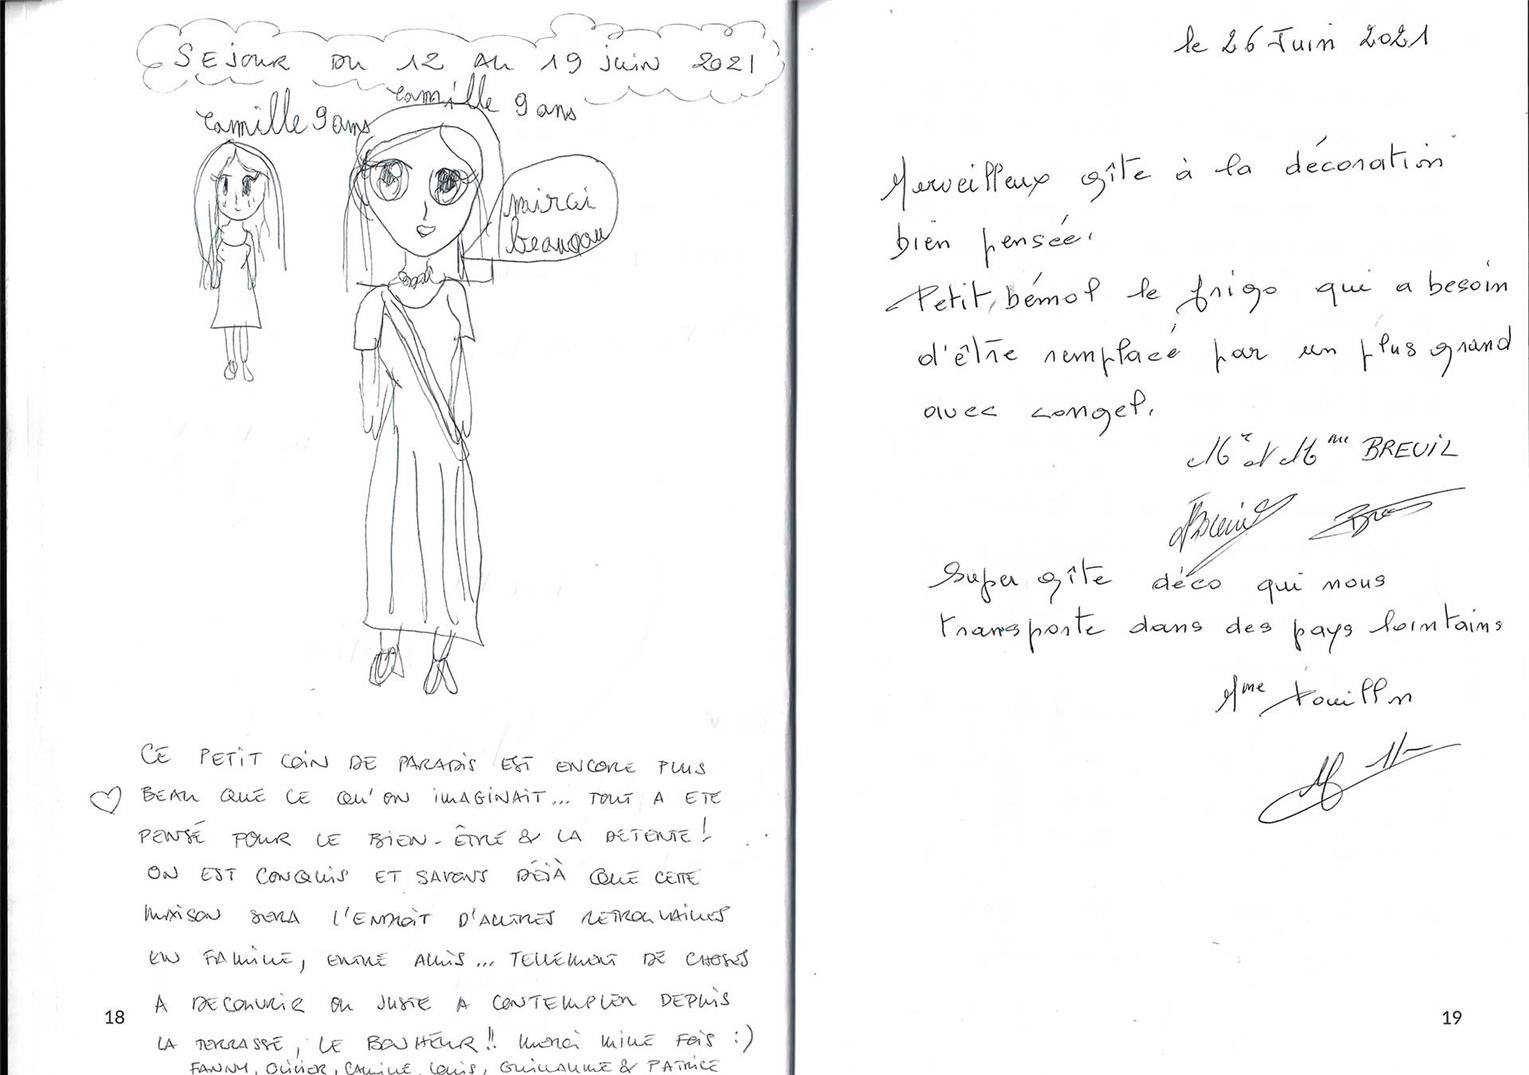 SEJOUR DU 12 AU 19 juin 2021
Camille 9 ans
Camille 9 ans
mirci
beaucou
CE PETIT COIN DE PARADIS EST ENCORE PLUS
BEAU QUE CE QU'ON IMAGINAIT... TOUT A ETE
PENSÉ POUR LE BIEN-ÊTRE & LA DETENTE !
ON EST CONQUIS ET SAVONS DÉJÀ QUE CETTE
MAISON SERA L'ENDROIT D'AUTRES RETROUVAILLES
EN FAMILLE, ENTRE AMIS... TELLEMENT DE CHOSES
A DECOUVRIR OU JUSTE A CONTEMPLER DEPUIS
LA TERRASSE, LE BONHEUR !! merci mille FOIS :)
FANNY, OLIVIER, CAMILLE, LOUIS, GUILLAUME & PATRICE
18
le 26 Juin 2021
Merveilleux gîte à la décoration
bien pensée.
Petit bémol le frigo qui a besoin
d'être remplacé par un plus grand
avec congel.
Mr et Mme BREUIL
Super gîte déco qui nous
transporte dans des pays lointains
Mme
19